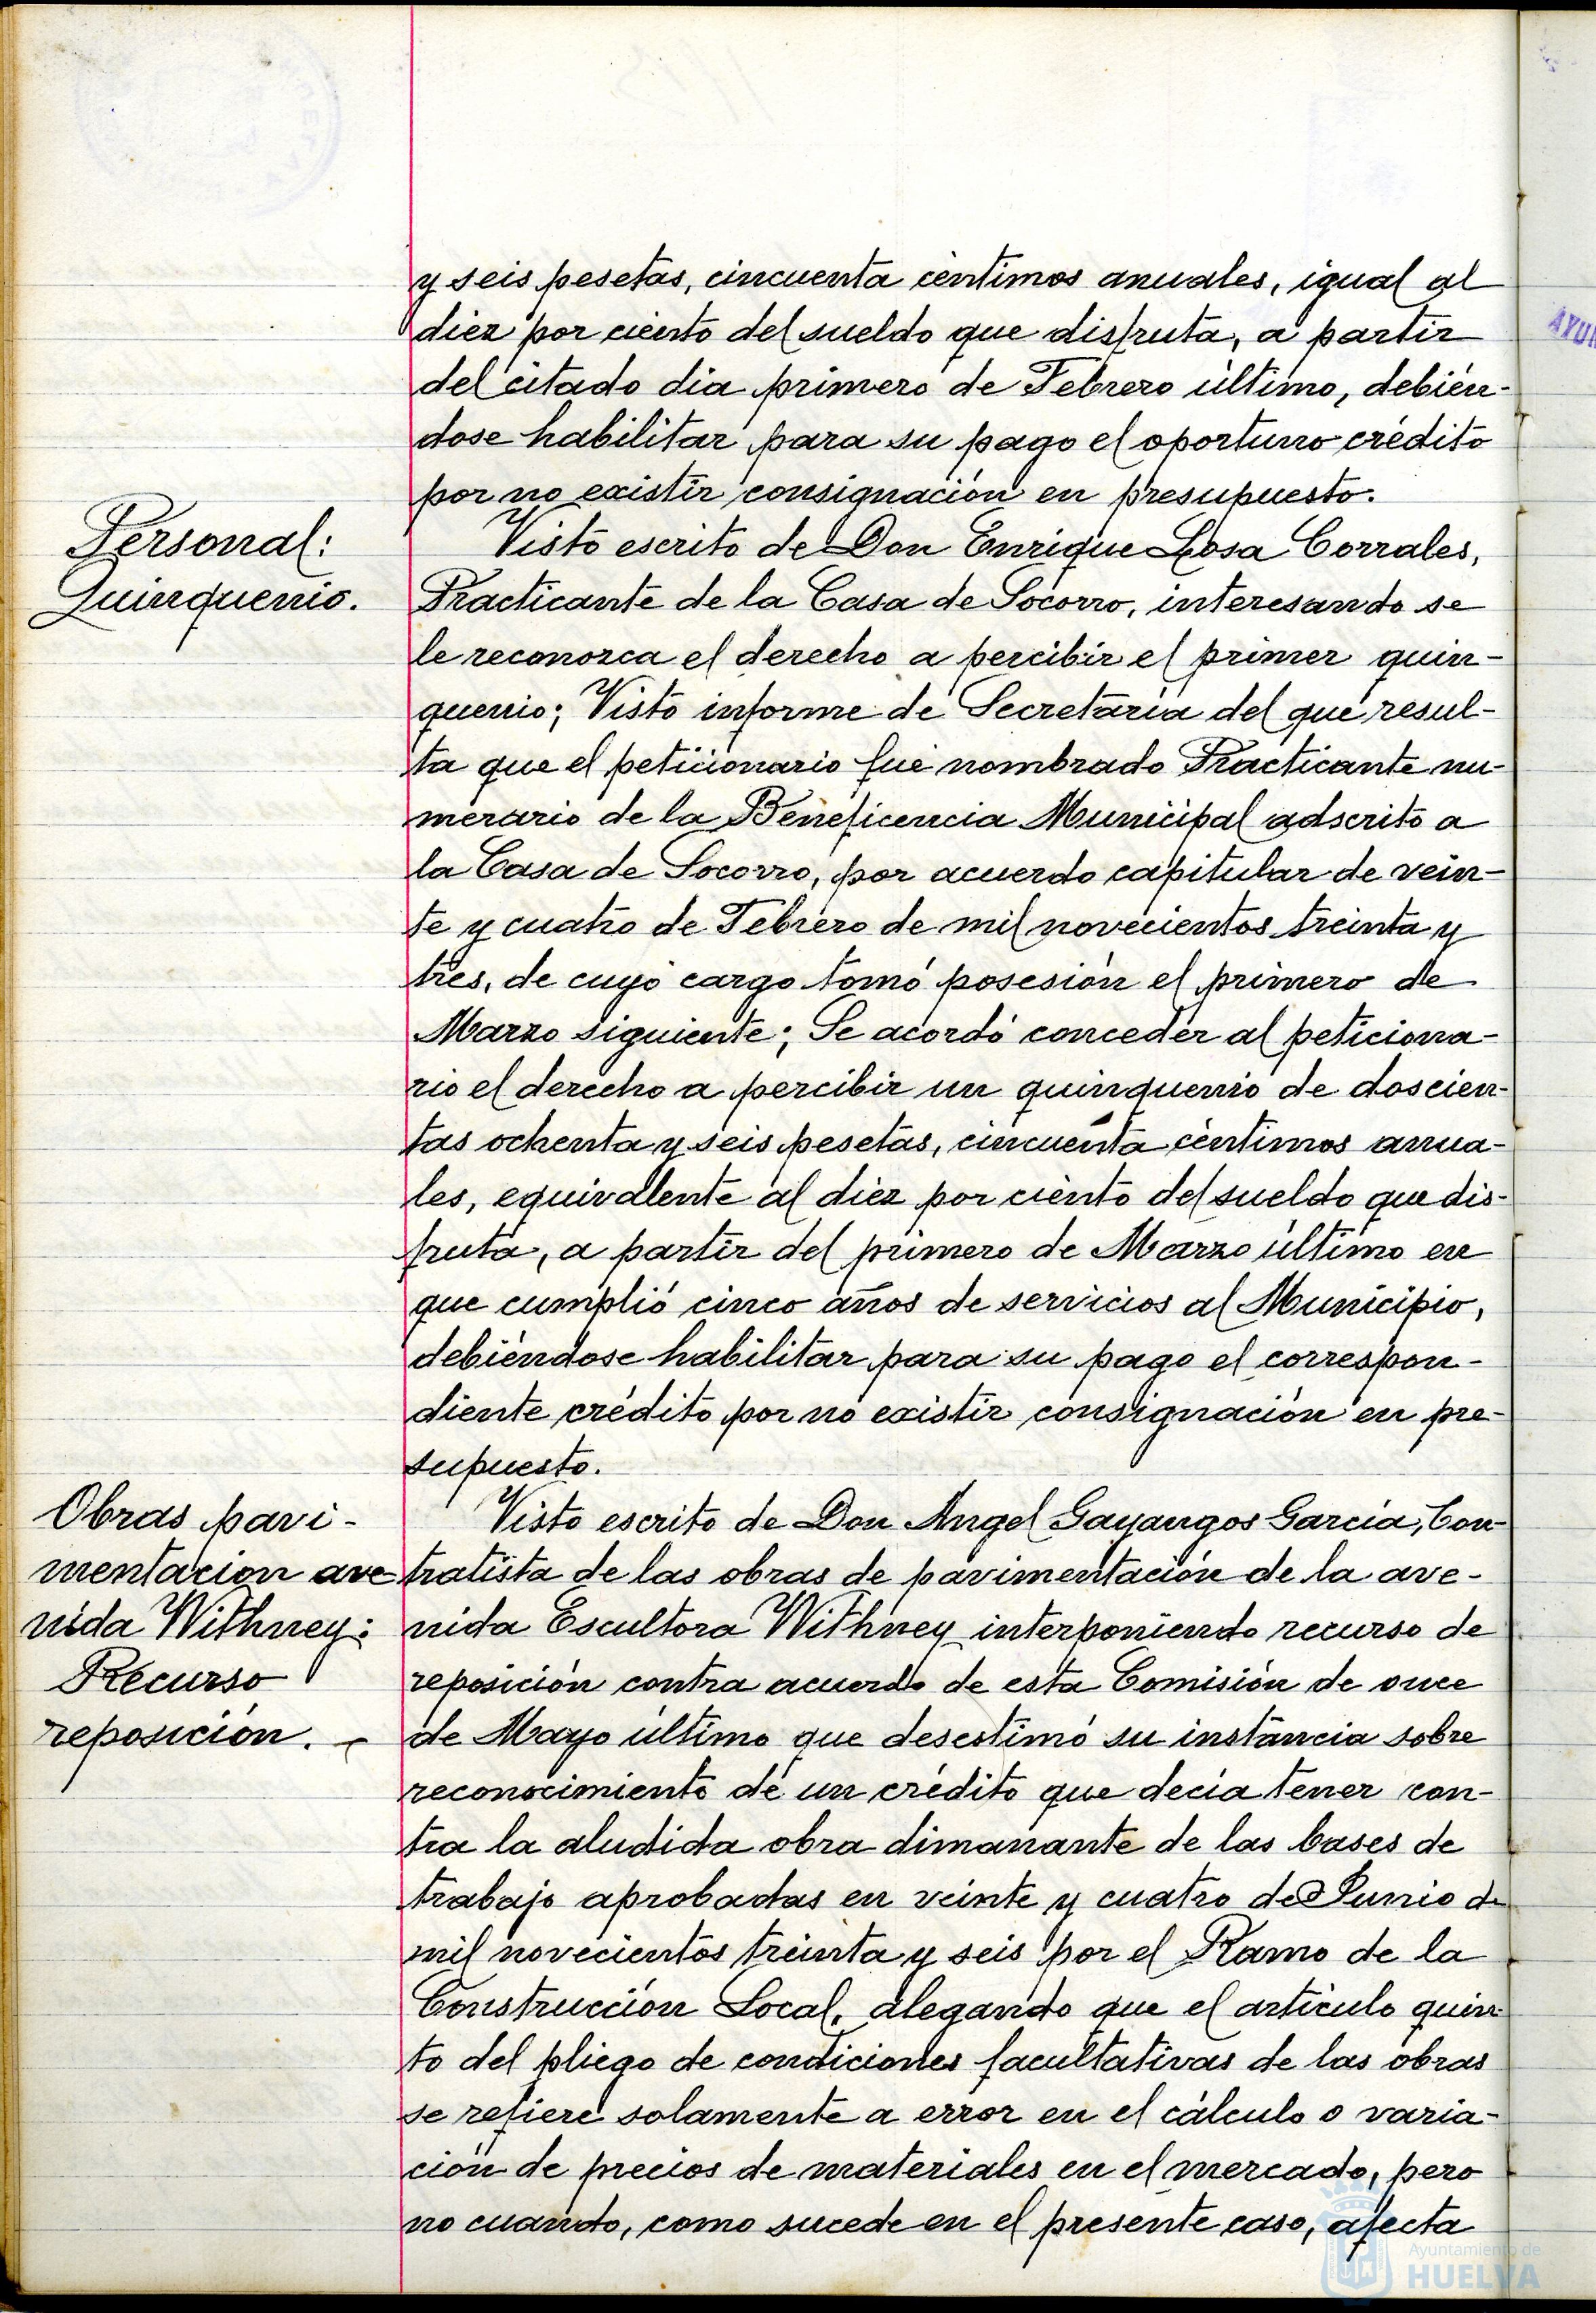 y seis pesetas, cincuenta céntimos anuales, igual al
diez por ciento del sueldo que disfruta, a partir
del citado dia primero de Febrero último, debién-
dose habilitar para su pago el oportuno crédito
por no existir consignación en presupuesto.
Personal:
Quinquenio.
Visto escrito de Don Enrique Losa Corrales,
Practicante de la Casa de Socorro, interesando se
le reconozca el derecho a percibir el primer quin-
quenio; Visto informe de Secretaría del que resul-
ta que el peticionario fué nombrado Practicante nu-
merario de la Beneficencia Municipal adscrito a
la Casa de Socorro, por acuerdo capitular de vein-
te y cuatro de Febrero de mil novecientos treinta y
tres, de cuyo cargo tomó posesión el primero de
Marzo siguiente; Se acordó conceder al peticiona-
rio el derecho a percibir un quinquenio de doscien-
tas ochenta y seis pesetas, cincuenta céntimos anua-
les, equivalente al diez por ciento del sueldo que dis-
fruta, a partir del primero de Marzo último en
que cumplió cinco años de servicios al Municipio,
debiéndose habilitar para su pago el correspon-
diente crédito por no existir consignación en pre-
supuesto.
Obras pavi-
mentación ave
nida Withney:
Recurso
reposición.
Visto escrito de Don Angel Gayangos García, Con-
tratista de las obras de pavimentación de la ave-
nida Escultora Withney interponiendo recurso de
reposición contra acuerdo de esta Comisión de once
de Mayo último que desestimó su instancia sobre
reconocimiento de un crédito que decía tener con-
tra la aludida obra dimanante de las bases de
trabajo aprobadas en veinte y cuatro de Junio de
mil novecientos treinta y seis por el Ramo de la
Construcción Local, alegando que el artículo quin-
to del pliego de condiciones facultativas de las obras
se refiere solamente a error en el cálculo o varia-
ción de precios de materiales en el mercado, pero
no cuando, como sucede en el presente caso, afecta
Ayuntamiento de
HUELVA